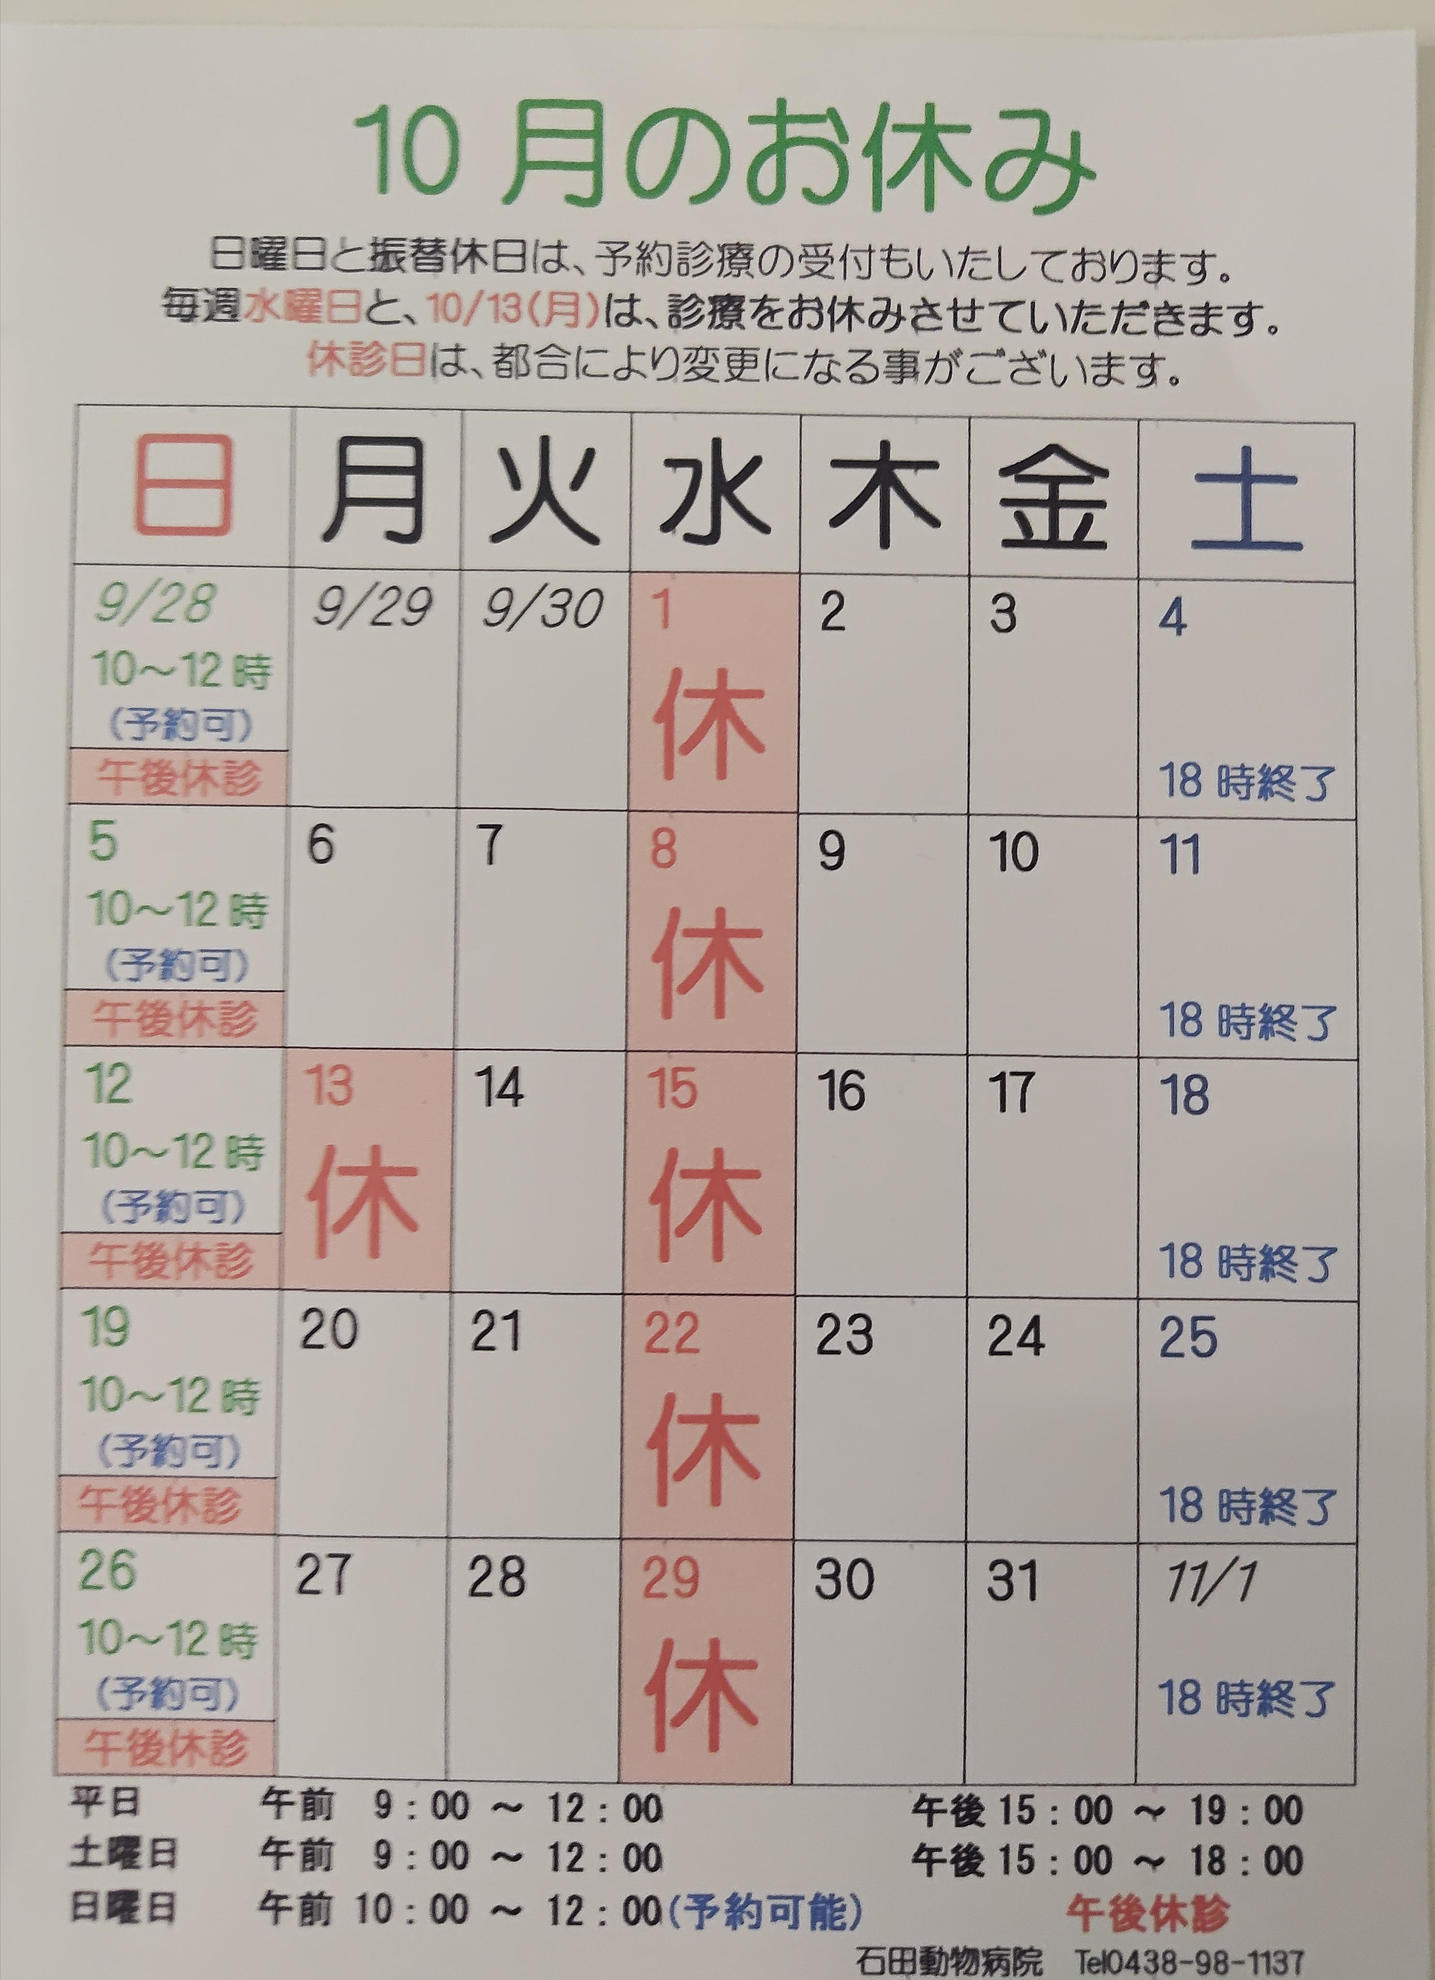 10月のお休み
日曜日と振替休日は、予約診療の受付もいたしております。
毎週水曜日と、10/13(月)は、診療をお休みさせていただきます。
休診日は、都合により変更になる事がございます。
日 月 火 水 木 金 土
9/28 9/29 9/30 1 2 3 4
10～12時
(予約可)
休
午後休診
18時終了
5 6 7 8 9 10 11
10～12時
(予約可)
休
午後休診
18時終了
12 13 14 15 16 17 18
10～12時
(予約可)
休 休
午後休診
18時終了
19 20 21 22 23 24 25
10～12時
(予約可)
休
午後休診
18時終了
26 27 28 29 30 31 11/1
10～12時
(予約可)
休
18時終了
午後休診
平日 午前 9：00 ～ 12：00 午後15：00 ～ 19：00
土曜日 午前 9：00 ～ 12：00 午後15：00 ～ 18：00
日曜日 午前 10：00 ～ 12：00(予約可能) 午後休診
石田動物病院 Tel0438-98-1137